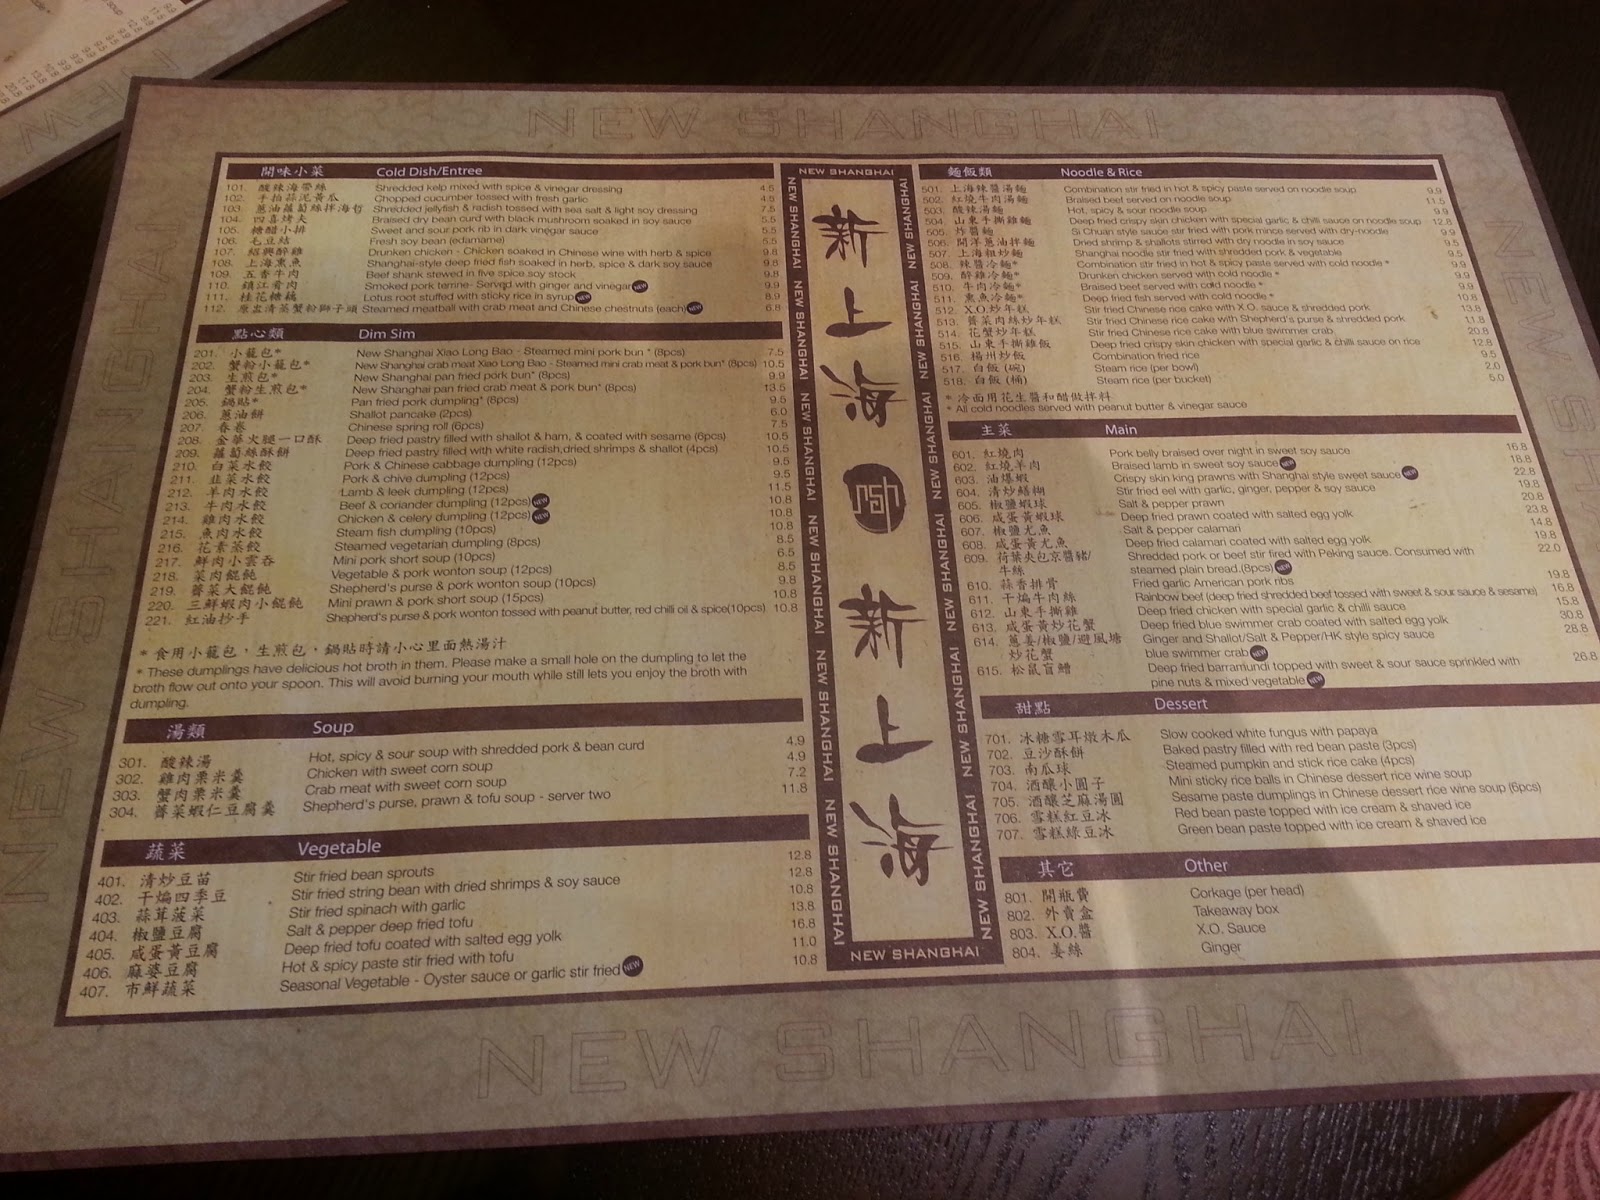 NEW SHANGHAI
開味小菜 Cold Dish/Entree
101. 酸辣海帶絲 Shredded kelp mixed with spice & vinegar dressing 4.5
102. 手拍蒜泥黃瓜 Chopped cucumber tossed with fresh garlic 4.5
103. 蔥油蘿蔔絲拌海哲 Shredded jellyfish & radish tossed with sea salt & light soy dressing 7.5
104. 四喜烤夫 Braised dry bean curd with black mushroom soaked in soy sauce 5.5
105. 糖醋小排 Sweet and sour pork rib in dark vinegar sauce 5.5
106. 毛豆結 Fresh soy bean (edamame) 5.5
107. 紹興醉雞 Drunken chicken - Chicken soaked in Chinese wine with herb & spice 9.8
108. 上海熏魚 Shanghai-style deep fried fish soaked in herb, spice & dark soy sauce 9.8
109. 五香牛肉 Beef shank stewed in five spice soy stock 9.8
110. 鎮江肴肉 Smoked pork terrine- Served with ginger and vinegar NEW 9.8
111. 桂花糖藕 Lotus root stuffed with sticky rice in syrup NEW 8.9
112. 原盅清蒸蟹粉獅子頭 Steamed meatball with crab meat and Chinese chestnuts (each) NEW 6.8
點心類 Dim Sim
201. 小籠包* New Shanghai Xiao Long Bao - Steamed mini pork bun * (8pcs) 7.5
202. 蟹粉小籠包* New Shanghai crab meat Xiao Long Bao - Steamed mini crab meat & pork bun * (8pcs) 10.5
203. 生煎包* New Shanghai pan fried pork bun* (8pcs) 9.9
204. 蟹粉生煎包* New Shanghai pan fried crab meat & pork bun* (8pcs) 13.5
205. 鍋貼* Pan fried pork dumpling* (8pcs) 9.5
206. 蔥油餅 Shallot pancake (2pcs) 6.0
207. 春卷 Chinese spring roll (6pcs) 7.5
208. 金華火腿一口酥 Deep fried pastry filled with shallot & ham, & coated with sesame (6pcs) 10.5
209. 蘿蔔絲酥餅 Deep fried pastry filled with white radish,dried shrimps & shallot (4pcs) 10.5
210. 白菜水餃 Pork & Chinese cabbage dumpling (12pcs) 9.5
211. 韭菜水餃 Pork & chive dumpling (12pcs) 9.5
212. 羊肉水餃 Lamb & leek dumpling (12pcs) 11.5
213. 牛肉水餃 Beef & coriander dumpling (12pcs) NEW 10.8
214. 雞肉水餃 Chicken & celery dumpling (12pcs) NEW 10.8
215. 魚肉水餃 Steam fish dumpling (10pcs) 10.8
216. 花素蒸餃 Steamed vegetarian dumpling (8pcs) 8.5
217. 鮮肉小雲吞 Mini pork short soup (10pcs) 6.5
218. 菜肉餛飩 Vegetable & pork wonton soup (12pcs) 8.5
219. 薺菜大餛飩 Shepherd's purse & pork wonton soup (10pcs) 9.8
220. 三鮮蝦肉小餛飩 Mini prawn & pork short soup (15pcs) 10.8
221. 紅油抄手 Shepherd's purse & pork wonton tossed with peanut butter, red chilli oil & spice(10pcs) 10.8
* 食用小籠包，生煎包，鍋貼時請小心里面熱湯汁
* These dumplings have delicious hot broth in them. Please make a small hole on the dumpling to let the
broth flow out onto your spoon. This will avoid burning your mouth while still lets you enjoy the broth with
dumpling.
湯類 Soup
301. 酸辣湯 Hot, spicy & sour soup with shredded pork & bean curd 4.9
302. 雞肉粟米羹 Chicken with sweet corn soup 4.9
303. 蟹肉粟米羹 Crab meat with sweet corn soup 7.2
304. 薺菜蝦仁豆腐羹 Shepherd's purse, prawn & tofu soup - server two 11.8
蔬菜 Vegetable
401. 清炒豆苗 Stir fried bean sprouts 12.8
402. 干煸四季豆 Stir fried string bean with dried shrimps & soy sauce 12.8
403. 蒜茸菠菜 Stir fried spinach with garlic 10.8
404. 椒鹽豆腐 Salt & pepper deep fried tofu 13.8
405. 咸蛋黃豆腐 Deep fried tofu coated with salted egg yolk 16.8
406. 麻婆豆腐 Hot & spicy paste stir fried with tofu 11.0
407. 市鮮蔬菜 Seasonal Vegetable - Oyster sauce or garlic stir fried NEW 10.8
NEW SHANGHAI
新上海
新上海
NEW SHANGHAI
麵飯類 Noodle & Rice
501. 上海辣醬湯麵 Combination stir fried in hot & spicy paste served on noodle soup 9.9
502. 紅燒牛肉湯麵 Braised beef served on noodle soup 11.5
503. 酸辣湯麵 Hot, spicy & sour noodle soup 9.9
504. 山東手撕雞麵 Deep fried crispy skin chicken with special garlic & chilli sauce on noodle soup 12.8
505. 炸醬麵 Si Chuan style sauce stir fried with pork mince served with dry-noodle 9.9
506. 開洋蔥油拌麵 Dried shrimp & shallots stirred with dry noodle in soy sauce 9.5
507. 上海粗炒麵 Shanghai noodle stir fried with shredded pork & vegetable 9.5
508. 辣醬冷麵* Combination stir fried in hot & spicy paste served with cold noodle * 9.9
509. 醉雞冷麵* Drunken chicken served with cold noodle * 9.9
510. 牛肉冷麵* Braised beef served with cold noodle * 9.9
511. 熏魚冷麵* Deep fried fish served with cold noodle * 10.8
512. X.O.炒年糕 Stir fried Chinese rice cake with X.O. sauce & shredded pork 13.8
513. 薺菜肉絲炒年糕 Stir fried Chinese rice cake with Shepherd's purse & shredded pork 11.8
514. 花蟹炒年糕 Stir fried Chinese rice cake with blue swimmer crab 20.8
515. 山東手撕雞飯 Deep fried crispy skin chicken with special garlic & chilli sauce on rice 12.8
516. 揚州炒飯 Combination fried rice 9.5
517. 白飯 (碗) Steam rice (per bowl) 2.0
518. 白飯 (桶) Steam rice (per bucket) 5.0
* 冷面用花生醬和醋做拌料
* All cold noodles served with peanut butter & vinegar sauce
主菜 Main
601. 紅燒肉 Pork belly braised over night in sweet soy sauce 16.8
602. 紅燒羊肉 Braised lamb in sweet soy sauce NEW 18.8
603. 油爆蝦 Crispy skin king prawns with Shanghai style sweet sauce NEW 22.8
604. 清炒鱔糊 Stir fried eel with garlic, ginger, pepper & soy sauce 19.8
605. 椒鹽蝦球 Salt & pepper prawn 20.8
606. 咸蛋黃蝦球 Deep fried prawn coated with salted egg yolk 23.8
607. 椒鹽尤魚 Salt & pepper calamari 14.8
608. 咸蛋黃尤魚 Deep fried calamari coated with salted egg yolk 19.8
609. 荷葉夾包京醬豬/ Shredded pork or beef stir fired with Peking sauce. Consumed with 22.0
牛絲 steamed plain bread.(8pcs) NEW
610. 蒜香排骨 Fried garlic American pork ribs 19.8
611. 干煸牛肉絲 Rainbow beef (deep fried shredded beef tossed with sweet & sour sauce & sesame) 16.8
612. 山東手撕雞 Deep fried chicken with special garlic & chilli sauce 15.8
613. 咸蛋黃炒花蟹 Deep fried blue swimmer crab coated with salted egg yolk 30.8
614. 蔥姜/椒鹽/避風塘 Ginger and Shallot/Salt & Pepper/HK style spicy sauce 28.8
炒花蟹 blue swimmer crab NEW
615. 松鼠盲鰽 Deep fried barramundi topped with sweet & sour sauce sprinkled with 26.8
pine nuts & mixed vegetable NEW
甜點 Dessert
701. 冰糖雪耳燉木瓜 Slow cooked white fungus with papaya
702. 豆沙酥餅 Baked pastry filled with red bean paste (3pcs)
703. 南瓜球 Steamed pumpkin and stick rice cake (4pcs)
704. 酒釀小圓子 Mini sticky rice balls in Chinese dessert rice wine soup
705. 酒釀芝麻湯圓 Sesame paste dumplings in Chinese dessert rice wine soup (6pcs)
706. 雪糕紅豆冰 Red bean paste topped with ice cream & shaved ice
707. 雪糕綠豆冰 Green bean paste topped with ice cream & shaved ice
其它 Other
801. 開瓶費 Corkage (per head)
802. 外賣盒 Takeaway box
803. X.O.醬 X.O. Sauce
804. 姜絲 Ginger
NEW SHANGHAI